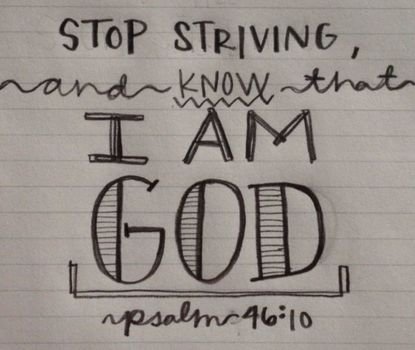 STOP STRIVING,
and KNOW that
I AM
GOD
psalm 46:10